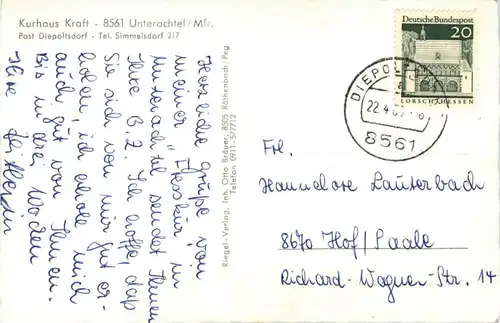 Kurhaus Kraft - 8561 Unterachtel/Mfr.
Post Diepoltsdorf - Tel. Simmelsdorf 217
Herzliche Grüße von
meiner "Fresskur" in
Unterachtel sendet Ihnen
Ihre B. Z. Ich hoffe, daß
Sie sich von mir gut er-
holen, ich erhole mich
auch gut von Ihnen.
Bis in drei Wochen
Ihre
Riegel-Verlag, Inh. Otto Bräuer, 8505 Röthenbach/Peg
Telefon 0911-577712
Deutsche Bundespost
20
LORSCH/HESSEN
DIEPOLT
22.4.69
8561
Frl.
Hannelore Lauterbach
8670 Hof/Saale
Richard-Wagner-Str. 14